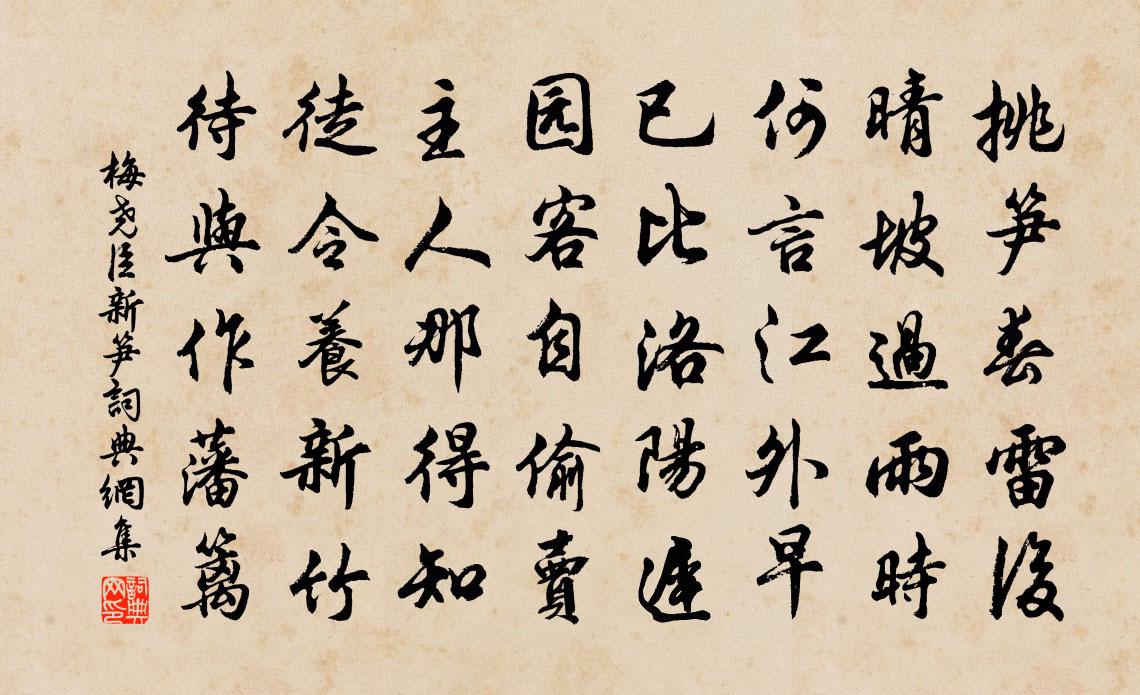 挑笋春雷後
晴坡過雨時
何言江外早
已比洛陽遲
园客自偷賣
主人那得知
徒令養新竹
待與作藩篱
梅尧臣新笋詞典網集
詞典网印